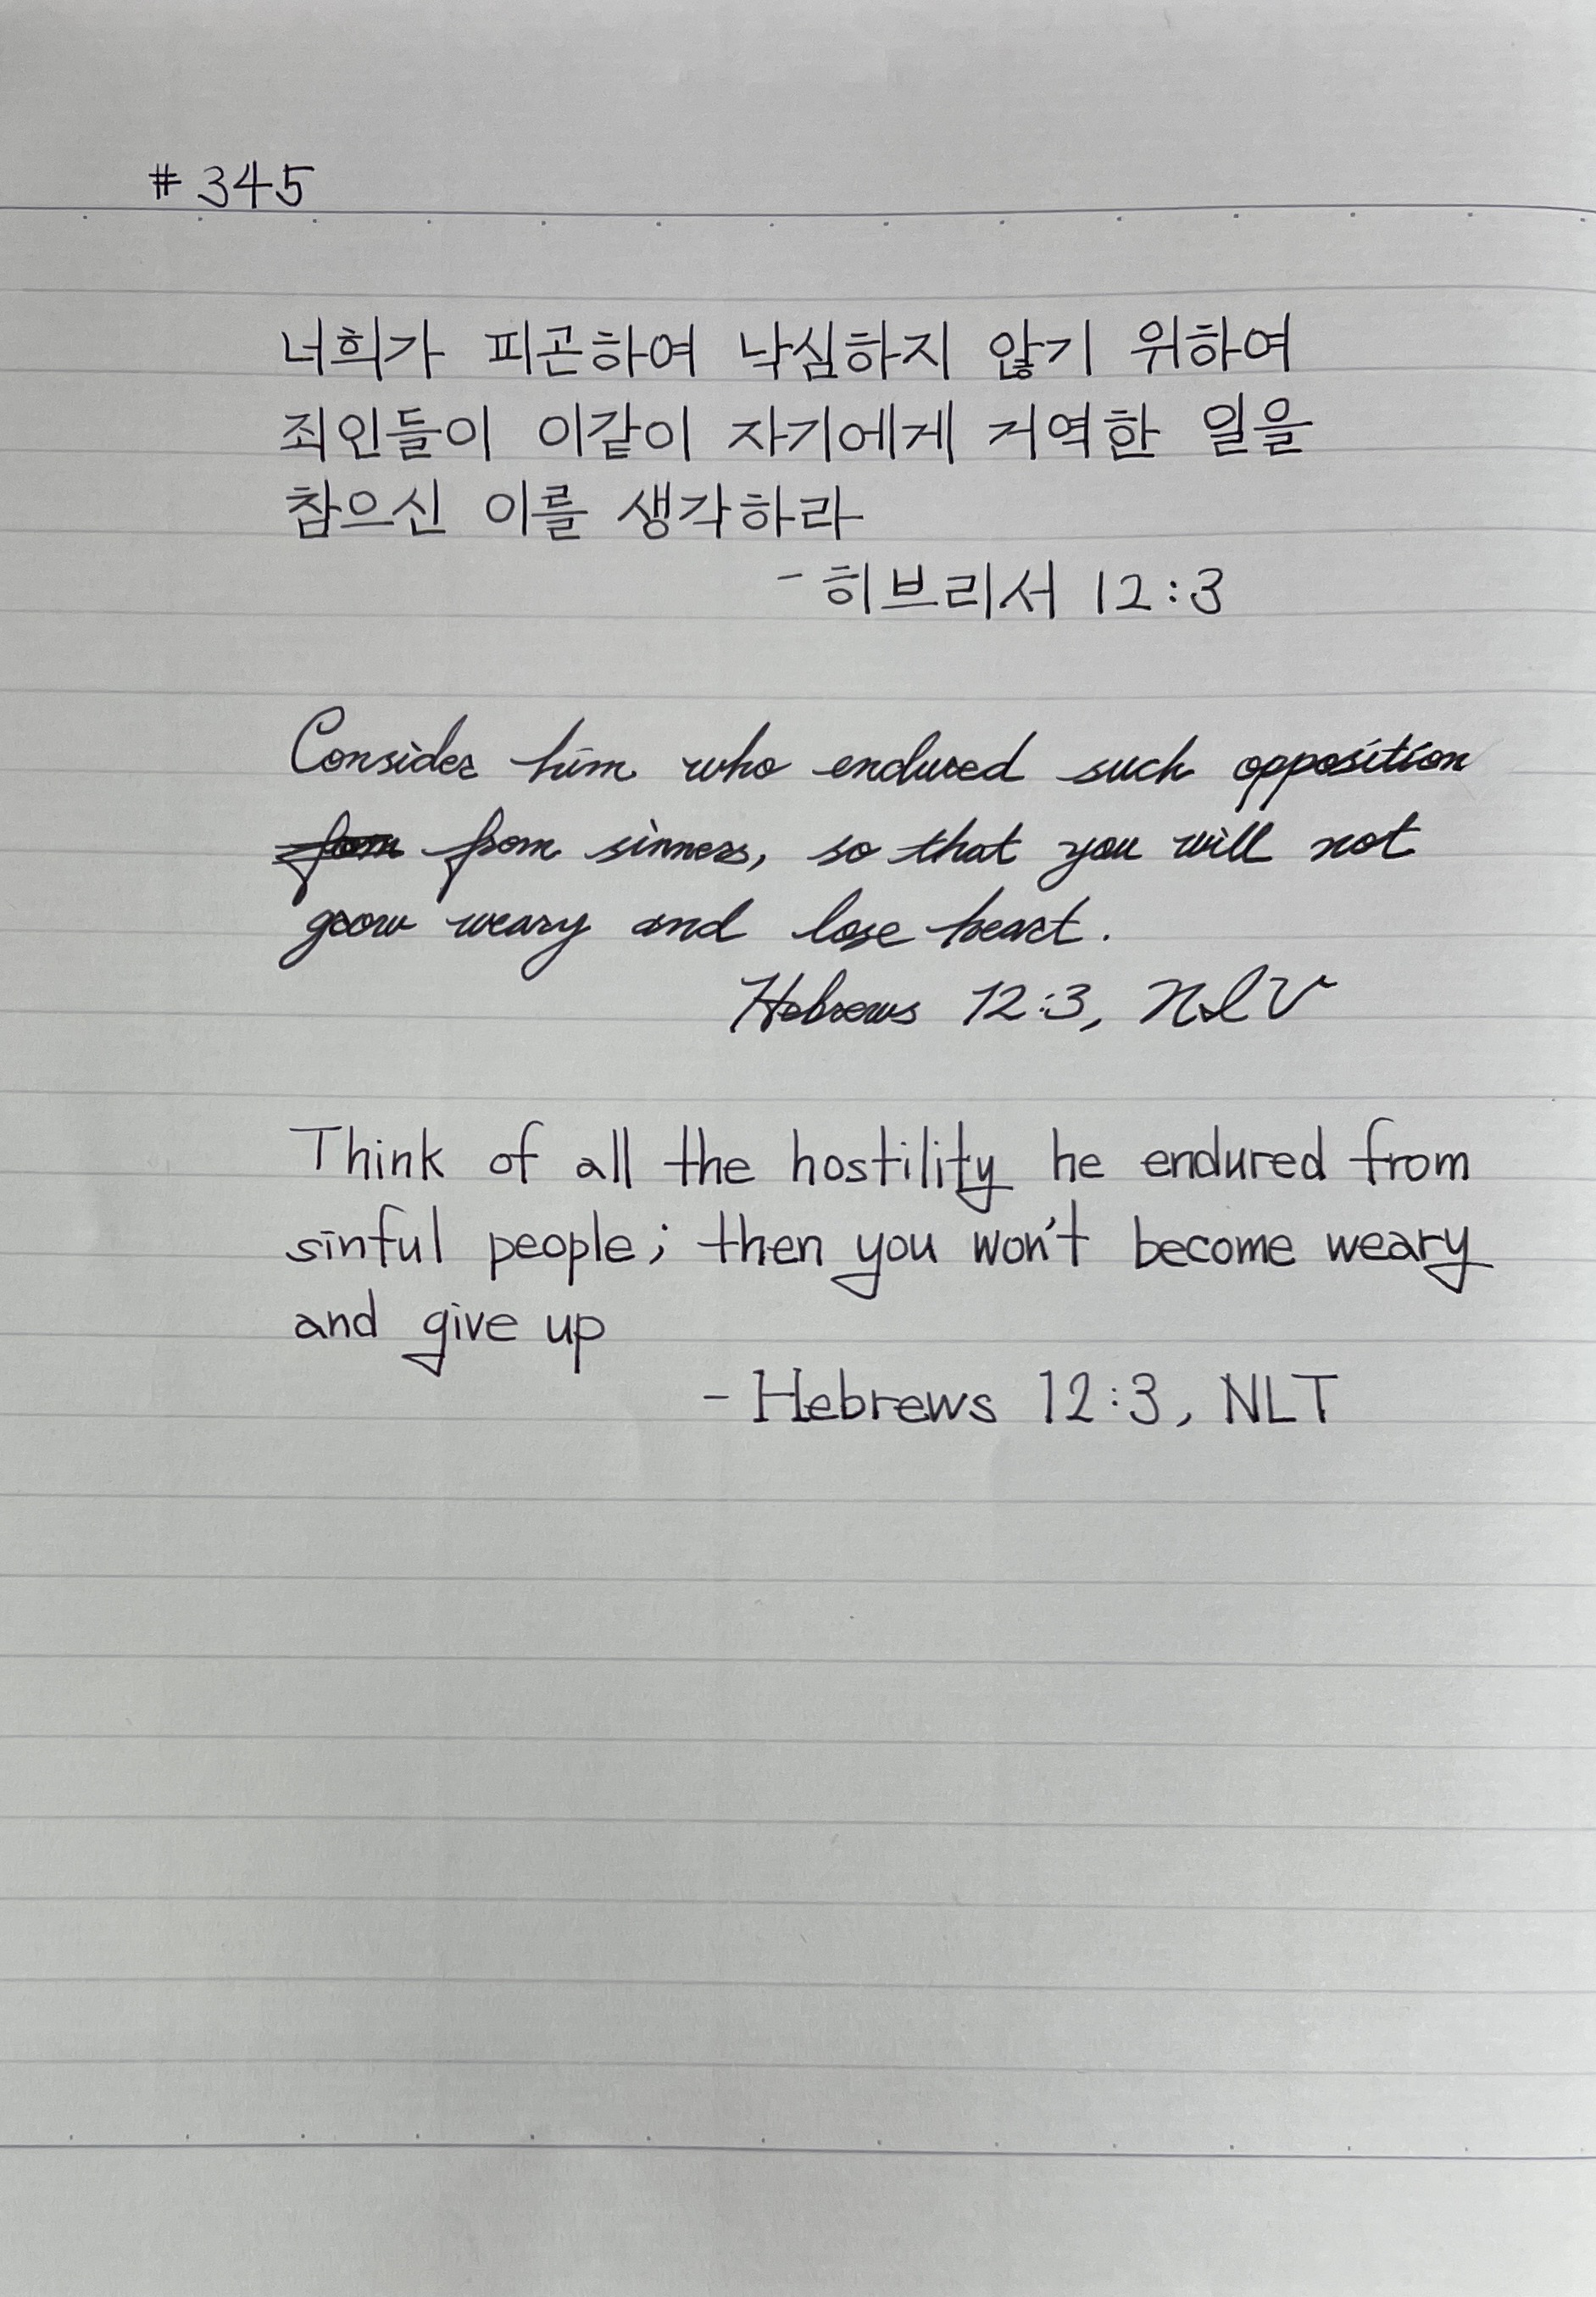 # 345
너희가 피곤하여 낙심하지 않기 위하여
죄인들이 이같이 자기에게 거역한 일을
참으신 이를 생각하라
- 히브리서 12:3
Consider him who endured such opposition
from sinners, so that you will not
grow weary and lose heart.
Hebrews 12:3, NIV
Think of all the hostility he endured from
sinful people; then you won't become weary
and give up
- Hebrews 12:3, NLT